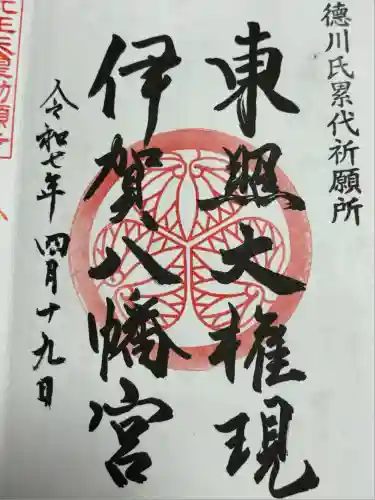 徳川氏累代祈願所
東照大権現
伊賀八幡宮
令和七年四月十九日